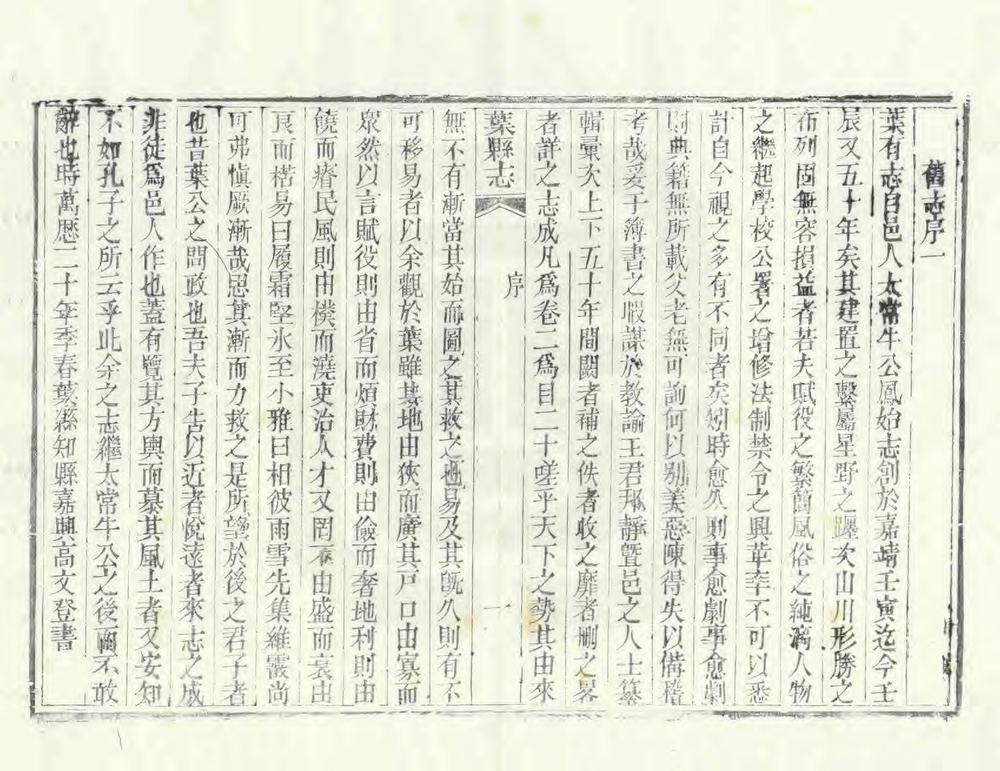 舊志序一
葉有志自邑人太常牛公鳳始志創於嘉靖壬寅迄今壬
辰又五十年矣其建置之繫屬星野之躔次山川形勝之
布列固無容損益者若夫賦役之繁簡風俗之純漓人物
之繼起學校公署之增修法制禁令之興革率不可以悉
計自今視之多有不同者矣矧時愈久則事愈劇事愈劇
則典籍無所載父老無可詢何以別美惡陳得失以備稽
考哉爰于簿書之暇謀於教諭王君邦靜暨邑之人士纂
輯彙次上下五十年間闕者補之佚者收之靡者刪之畧
者詳之志成凡爲卷二爲目二十嗟乎天下之勢其由來
葉縣志
序
一
無不有漸當其始而圖之其救之也易及其旣久則有不
可移易者以余觀於葉雖其地由狹而廣其戸口由寡而
眾然以言賦役則由省而煩財費則由儉而奢地利則由
饒而瘠民風則由樸而澆吏治人才又罔不由盛而衰由
良而楛易曰履霜堅氷至小雅曰相彼雨雪先集維霰尚
可弗愼厥漸哉惩其漸而力救之是所望於後之君子者
也昔葉公之問政也吾夫子告以近者悅遠者來志之成
非徒爲邑人作也蓋有覽其方輿而慕其風土者又安知
不如孔子之所云乎此余之志繼太常牛公之後而不敢
辭也時萬歷二十年季春葉縣知縣嘉興高文登書